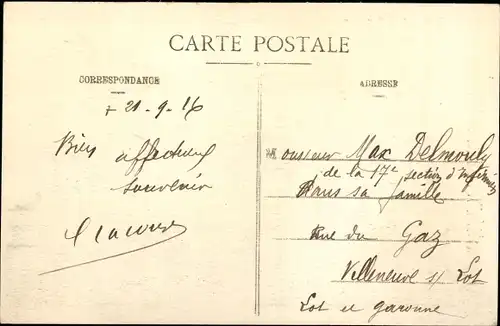 CARTE POSTALE
CORRESPONDANCE
+ 21-9-16
Bien affectueux
souvenir
ADRESSE
Monsieur Max Delmouly
de la 17e section d'infirmiers
Dans sa famille
Rue du Gaz
Villeneuve s/ Lot
Lot et garonne